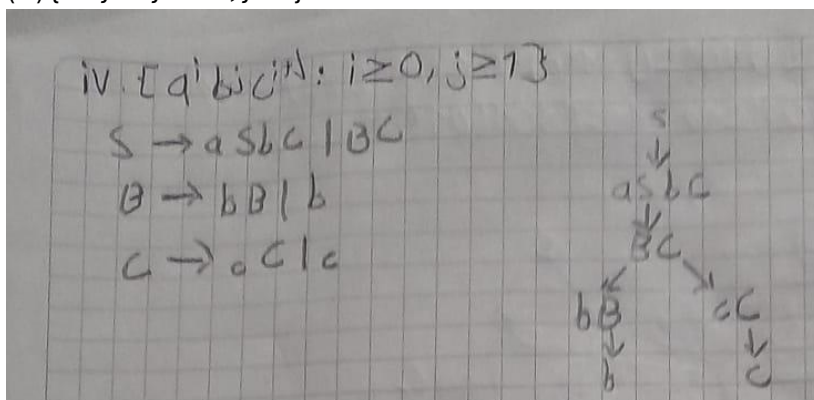 iv. { a^i b^j c^{i+j} : i ≥ 0, j ≥ 1 }
S → a S b C | B C
B → b B | b
C → c C | c
S
↓
a S b C
↓
B C
↙ ↘
b B c C
↓ ↓
b c